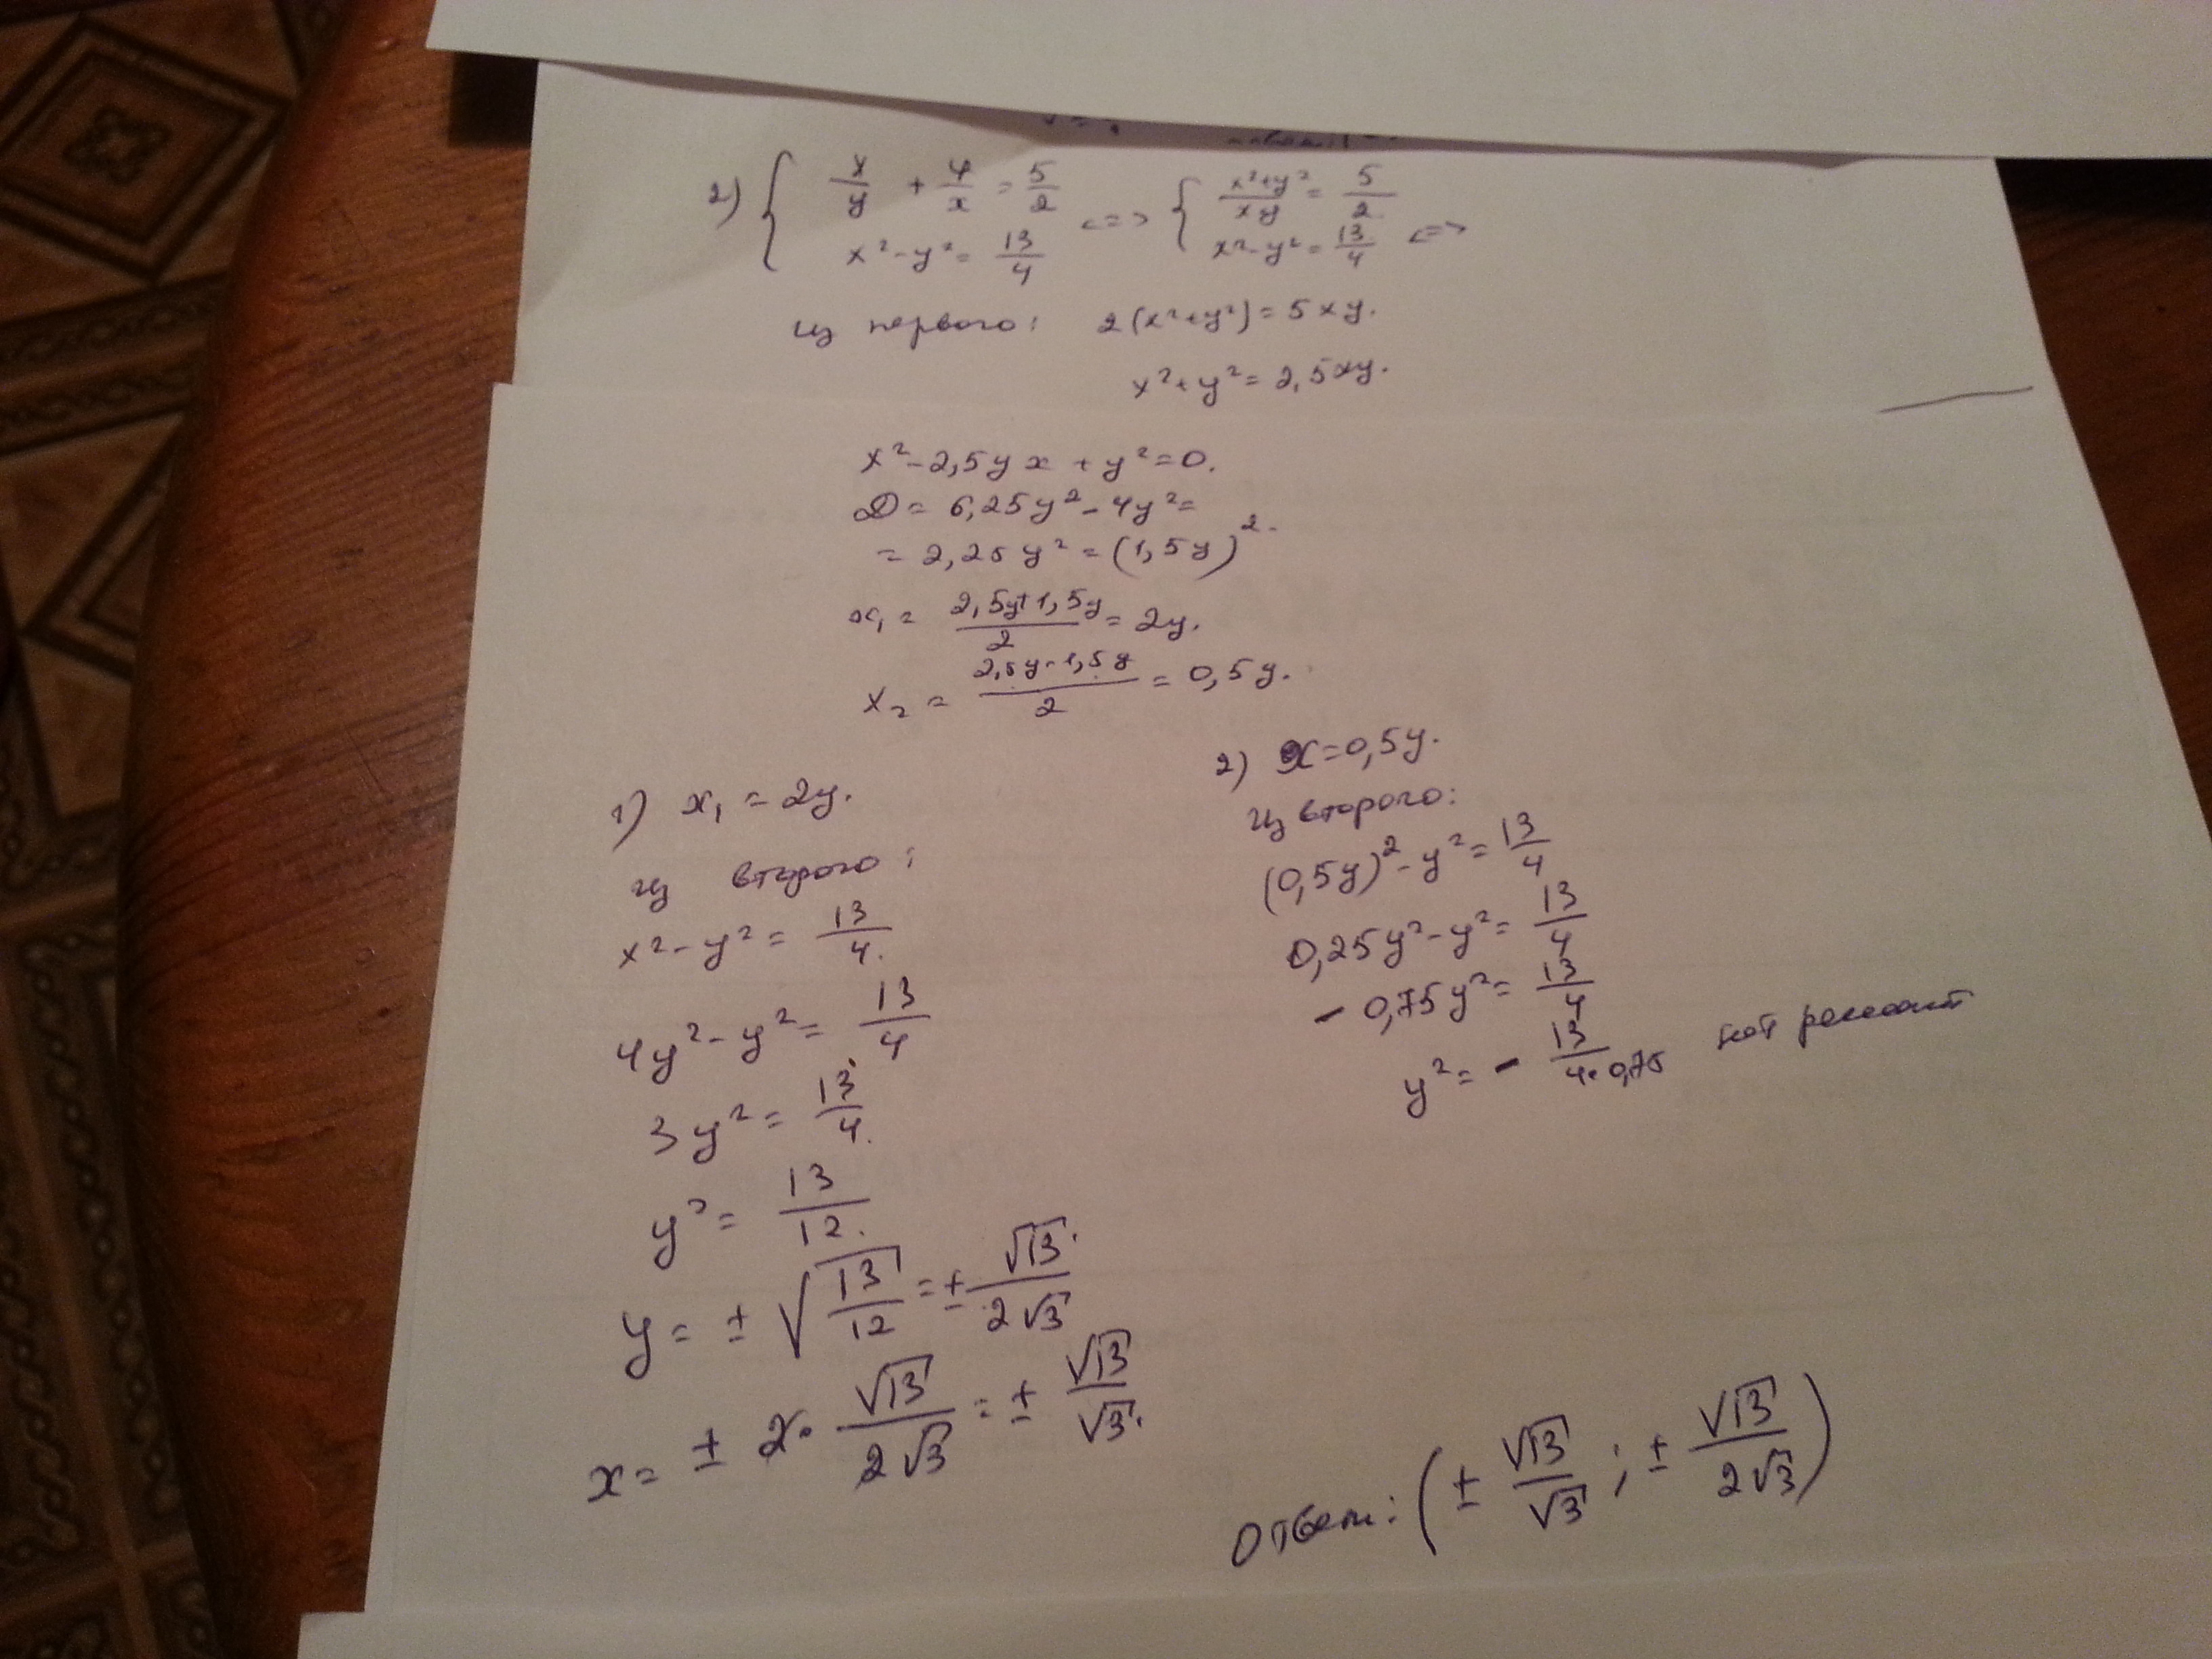 2) { x/y + y/x = 5/2 <=> { (x²+y²)/(xy) = 5/2
x² - y² = 13/4 x² - y² = 13/4 <=>
Из первого: 2(x²+y²) = 5xy.
x² + y² = 2,5xy.
x² - 2,5yx + y² = 0.
D = 6,25y² - 4y² =
= 2,25y² = (1,5y)².
x₁ = (2,5y+1,5y)/2 = 2y.
x₂ = (2,5y-1,5y)/2 = 0,5y.
1) x₁ = 2y.
Из второго:
x² - y² = 13/4.
4y² - y² = 13/4
3y² = 13/4.
y² = 13/12.
y = ± √(13/12) = ± √13/(2√3)
x = ± 2· √13/(2√3) = ± √13/√3.
2) x = 0,5y.
Из второго:
(0,5y)² - y² = 13/4
0,25y² - y² = 13/4
- 0,75y² = 13/4
y² = - 13/(4·0,75) нет решений
Ответ: (± √13/√3 ; ± √13/(2√3))